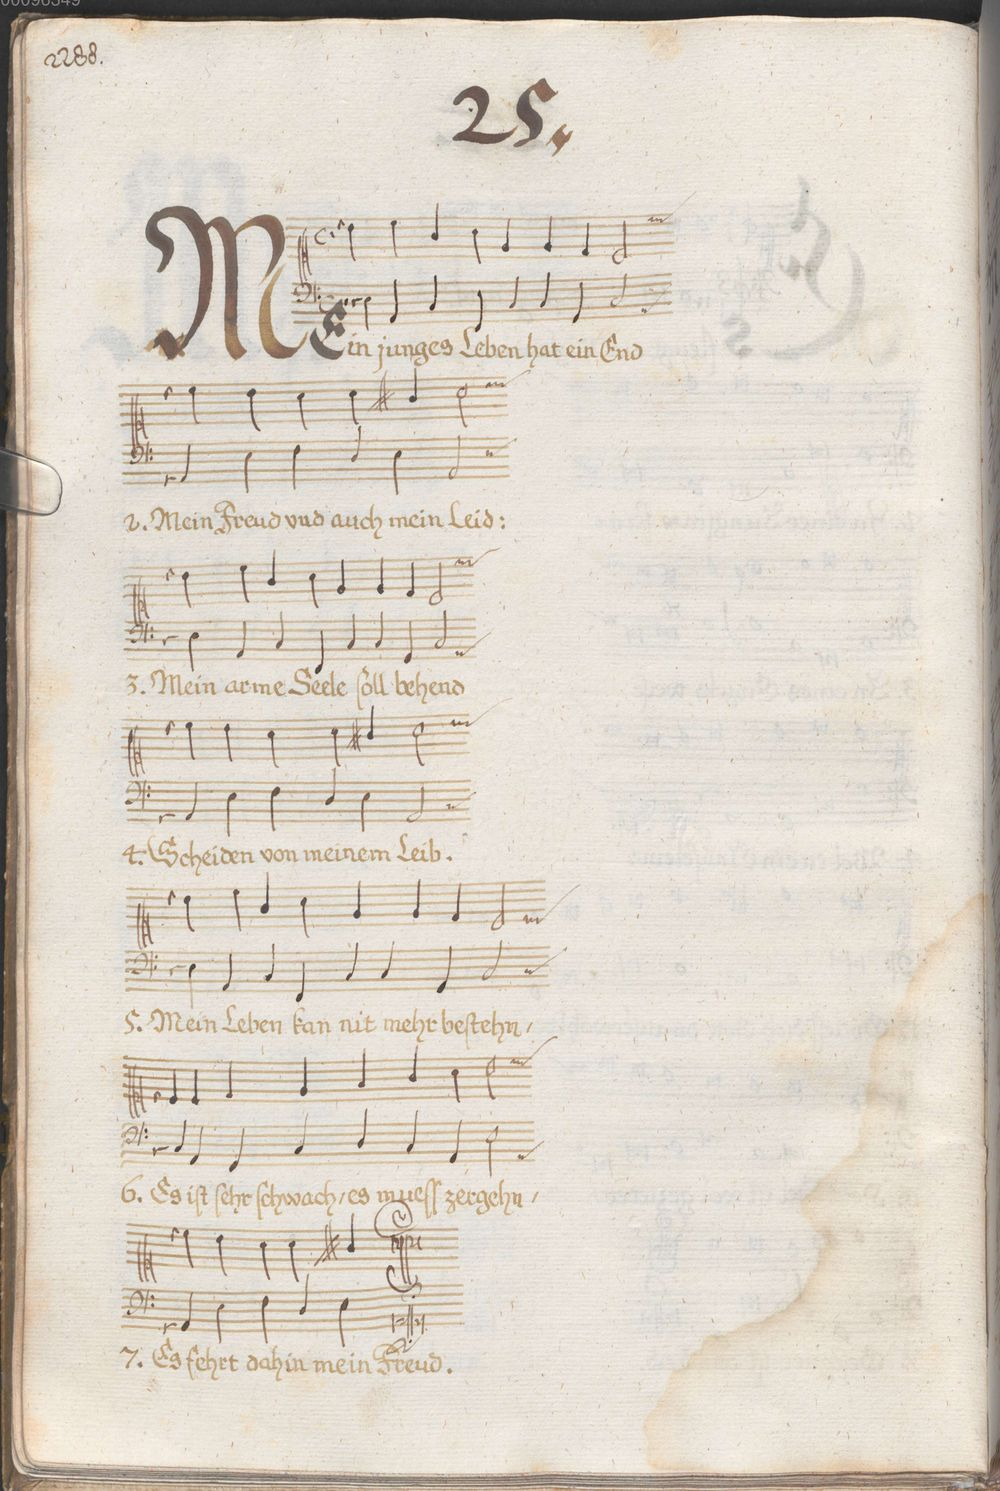 00096349
2288.
25.
MEin junges Leben hat ein End
2. Mein Freud vnd auch mein Leid:
3. Mein arme Seele soll behend
4. Scheiden von meinem Leib.
5. Mein Leben kan nit mehr bestehn /
6. Es ist sehr schwach / es muess zergehn /
7. Es fehrt dahin mein Freud.